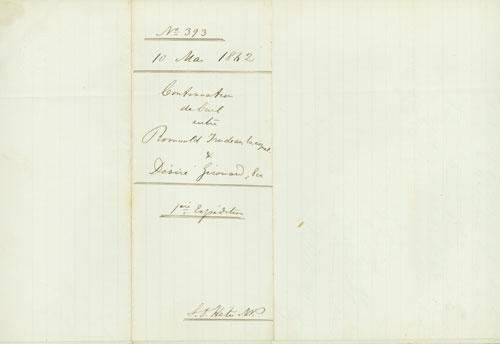 No 393
10 Mai 1862
Continuation
de Bail
entre
Romuald Trudeau
&
Désiré Girouard
1ère Expédition
N.P.